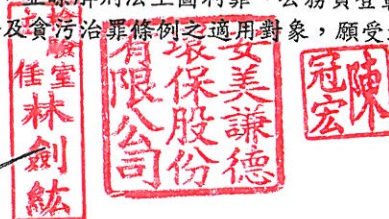 並瞭解刑法上圖利罪、公務員登載
及貪污治罪條例之適用對象，願受
驗室
林劍紘
安美謙德
環保股份
有限公司
陳
冠宏